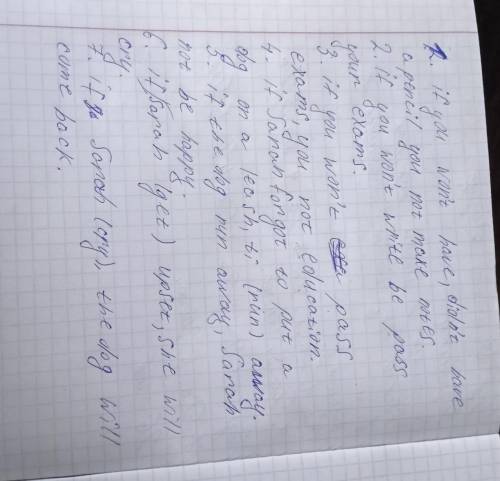 1. if you won't have, didn't have
a pencil you not make notes.
2. If you won't write be pass
your exams.
3. if you won't pass
exams, you not education.
4. if Sarah forgot to put a
dog on a leash, ti (run) away.
5. if the dog run away, Sarah
not be happy.
6. if Sarah (get) upset, she will
cry.
7. if Sarah (cry), the dog will
come back.